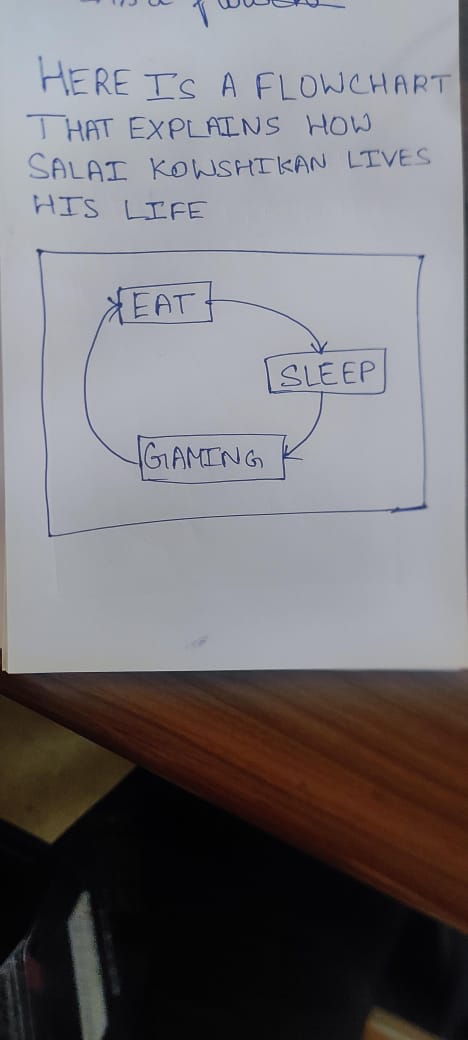 HERE IS A FLOWCHART
THAT EXPLAINS HOW
SALAI KOWSHIKAN LIVES
HIS LIFE
EAT
SLEEP
GAMING